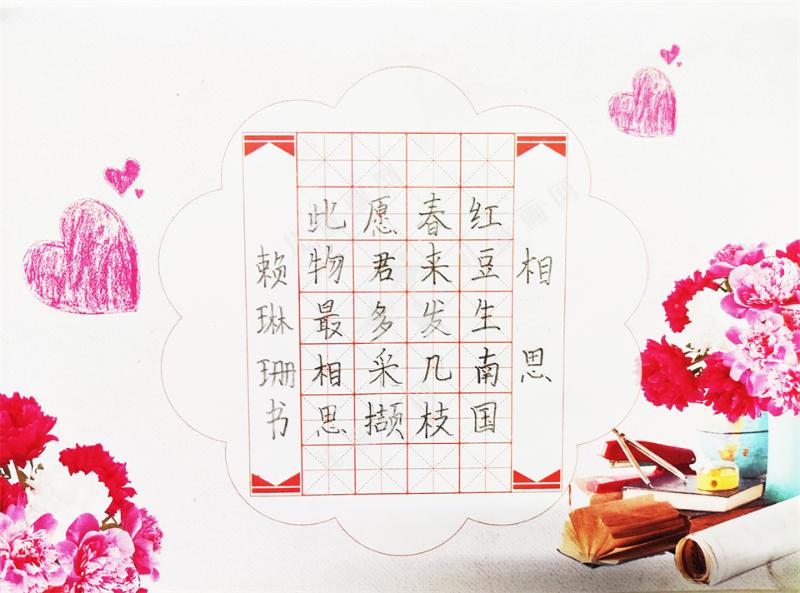 相思
红豆生南国
春来发几枝
愿君多采撷
此物最相思
赖琳珊书